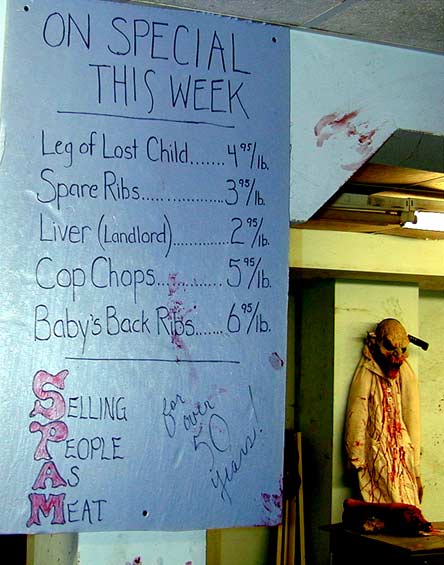 ON SPECIAL
THIS WEEK
Leg of Lost Child....... 4 95/lb.
Spare Ribs............... 3 95/lb.
Liver (Landlord).......... 2 95/lb.
Cop Chops............ 5 95/lb.
Baby's Back Ribs...... 6 95/lb.
SELLING
PEOPLE
AS
MEAT
for
over
50
years!